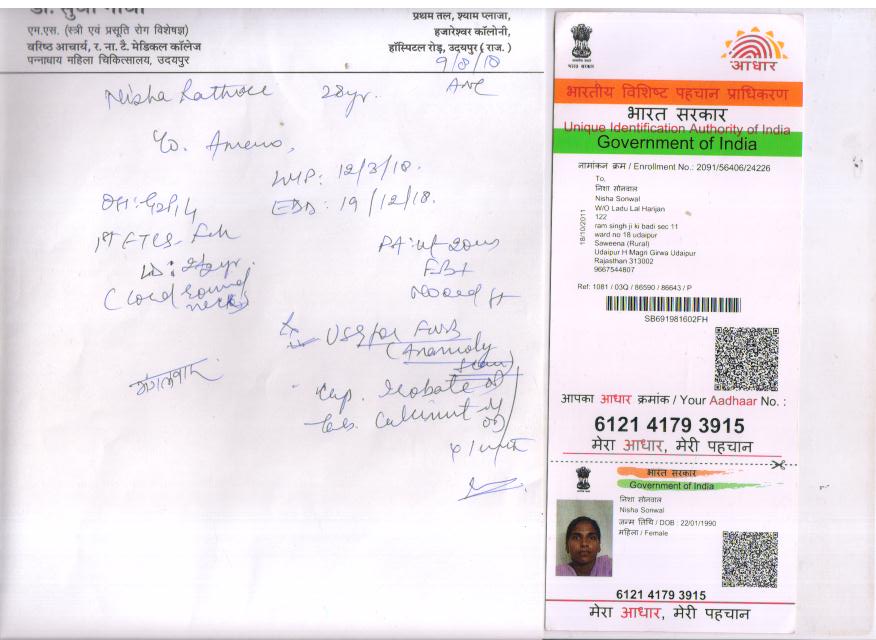 डॉ. सुधा गांधी
एम.एस. (स्त्री एवं प्रसूति रोग विशेषज्ञ)
वरिष्ठ आचार्य, र. ना. टै. मेडिकल कॉलेज
पन्नाधाय महिला चिकित्सालय, उदयपुर
प्रथम तल, श्याम प्लाजा,
हजारेश्वर कॉलोनी,
हॉस्पिटल रोड़, उदयपुर ( राज. )
9/8/18
Nisha Rathore 28yr. ANC
LMP: 12/3/18.
EDD: 19/12/18.
1st FTCS
(Cord round neck)
USG for FWB
(Anamoly scan)
Cap.
मंगलवार
आधार
भारत सरकार
भारतीय विशिष्ट पहचान प्राधिकरण
भारत सरकार
Unique Identification Authority of India
Government of India
नामांकन क्रम / Enrollment No.: 2091/56406/24226
18/10/2011
To,
निशा सोनवाल
Nisha Sonwal
W/O Ladu Lal Harijan
122
ram singh ji ki badi sec 11
ward no 18 udaipur
Saweena (Rural)
Udaipur H Magri Girwa Udaipur
Rajasthan 313002
9667544807
Ref: 1081 / 03Q / 86590 / 86643 / P
SB691981602FH
आपका आधार क्रमांक / Your Aadhaar No. :
6121 4179 3915
मेरा आधार, मेरी पहचान
भारत सरकार
Government of India
निशा सोनवाल
Nisha Sonwal
जन्म तिथि / DOB : 22/01/1990
महिला / Female
6121 4179 3915
मेरा आधार, मेरी पहचान